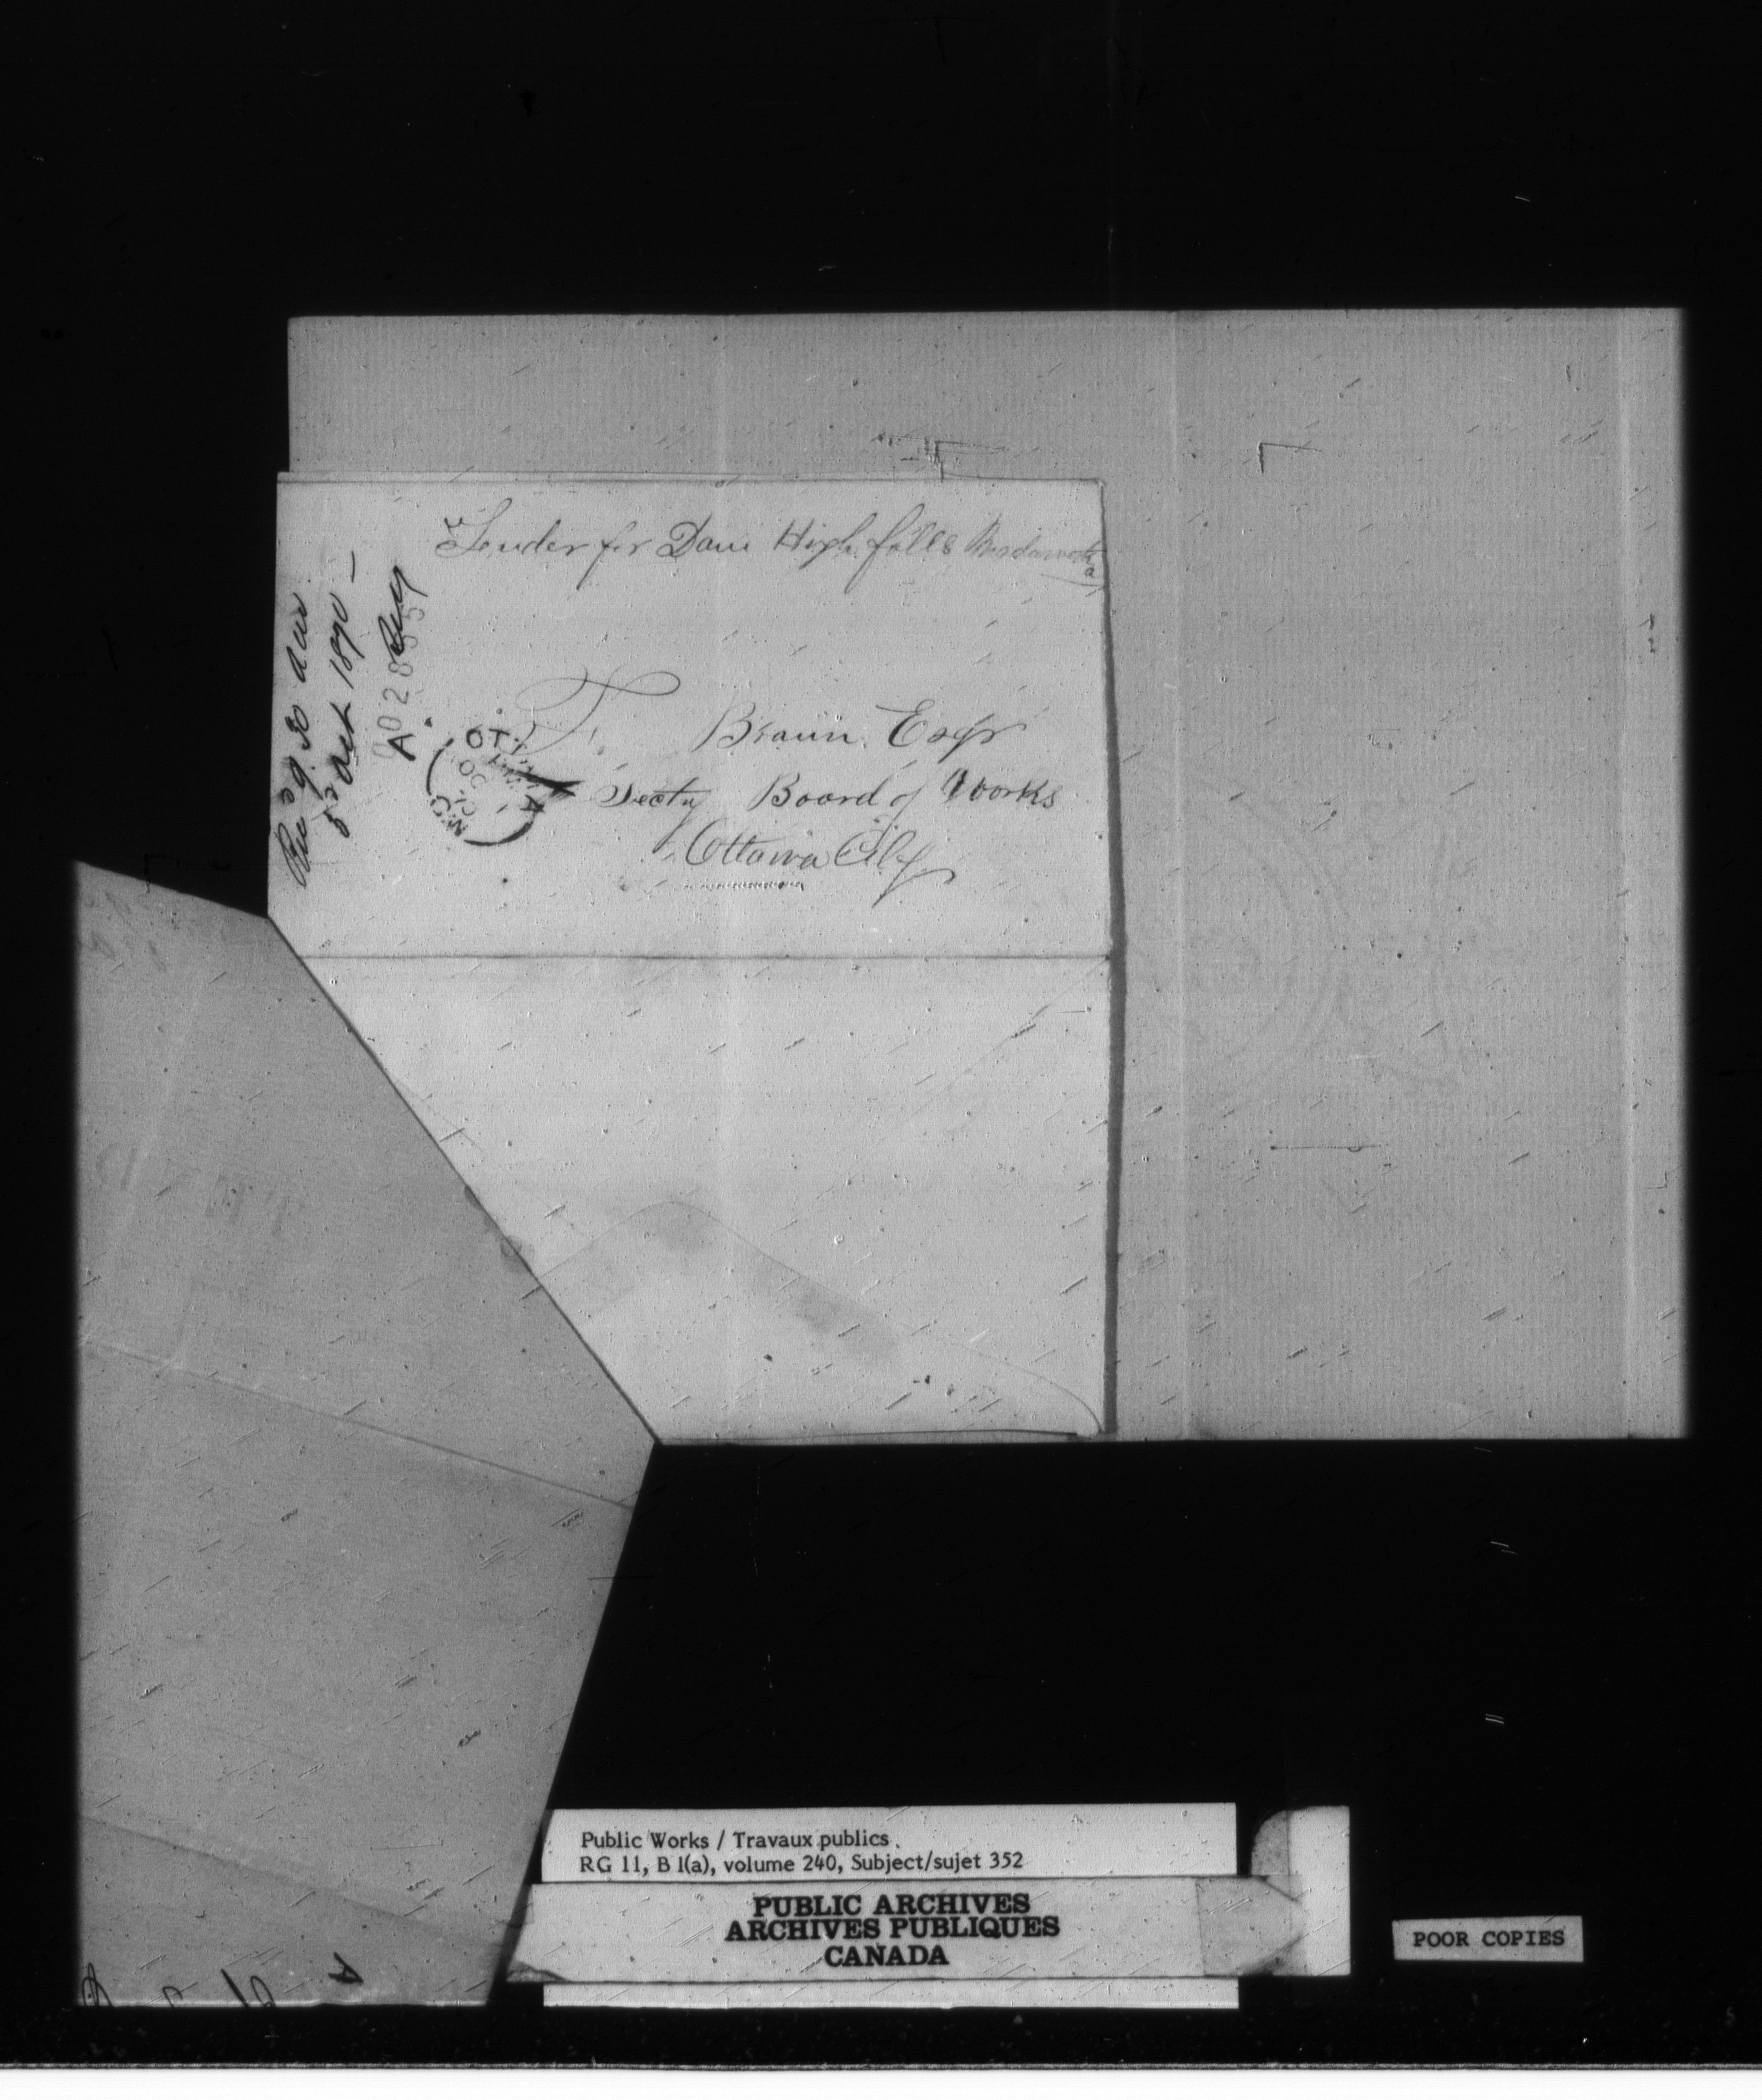 Tender for Dam High falls
Rec 9.30 am
5 Oct 1870 —
F. Braun Esqr
Secty Board of Works
Ottawa City
Public Works / Travaux publics
RG 11, B 1(a), volume 240, Subject/sujet 352
PUBLIC ARCHIVES
ARCHIVES PUBLIQUES
CANADA
POOR COPIES